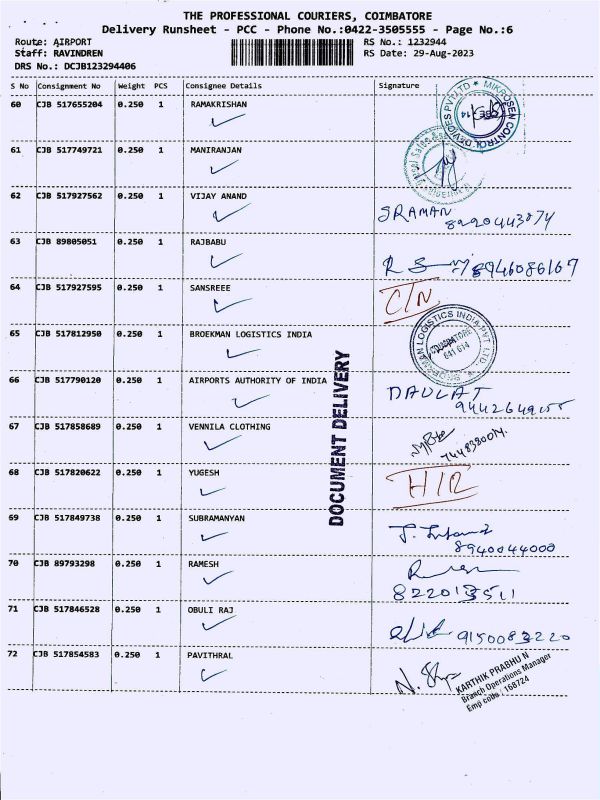 THE PROFESSIONAL COURIERS, COIMBATORE
Delivery Runsheet - PCC - Phone No.:0422-3505555 - Page No.:6
Route: AIRPORT RS No.: 1232944
Staff: RAVINDREN RS Date: 29-Aug-2023
DRS No.: DCJB123294406
S No Consignment No Weight PCS Consignee Details Signature
60 CJB 517655204 0.250 1 RAMAKRISHAN
MIKROSEN CONTROL DEVICES PVT LTD
61 CJB 517749721 0.250 1 MANIRANJAN
62 CJB 517927562 0.250 1 VIJAY ANAND
SRAMAN
63 CJB 89805051 0.250 1 RAJBABU
8946086167
64 CJB 517927595 0.250 1 SANSREEE
C/N
65 CJB 517812950 0.250 1 BROEKMAN LOGISTICS INDIA
LOGISTICS INDIA PVT. LTD.
COIMBATORE
641 014
66 CJB 517790120 0.250 1 AIRPORTS AUTHORITY OF INDIA
DAULAT
67 CJB 517858689 0.250 1 VENNILA CLOTHING
68 CJB 517820622 0.250 1 YUGESH
69 CJB 517849738 0.250 1 SUBRAMANYAN
8940044000
70 CJB 89793298 0.250 1 RAMESH
71 CJB 517846528 0.250 1 OBULI RAJ
9150083220
72 CJB 517854583 0.250 1 PAVITHRAL
KARTHIK PRABHU N
Branch Operations Manager
Emp code : 168724
DOCUMENT DELIVERY